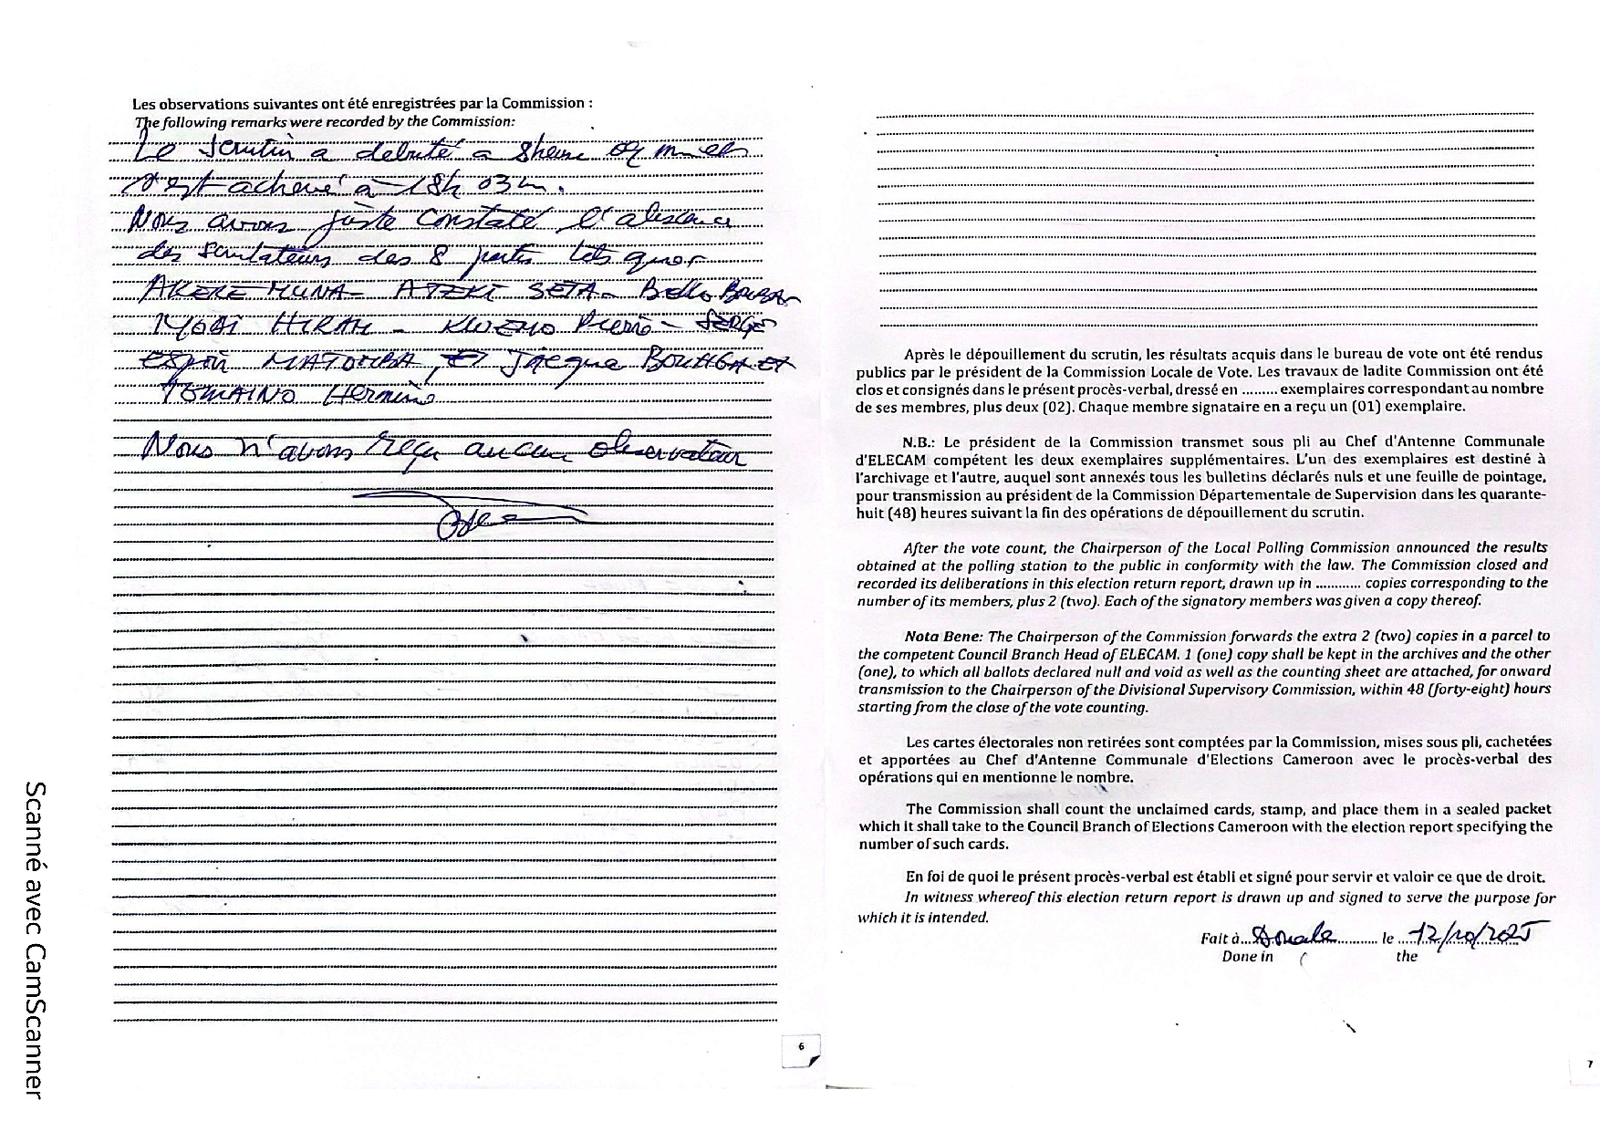 Les observations suivantes ont été enregistrées par la Commission :
The following remarks were recorded by the Commission:
Le scrutin a debuté à 8heure et
s'est achevé à 18h 03m.
Nous avons juste constaté l'absence
des scrutateurs des 8 partis tels que
AKERE MUNA - ATEKI SETA - Bello BOUBA
IYODI HIRAM - KWEMO Pierre - SERGE
ESPOIR MATOMBA, ET Jacques BOUHGA ET
TOMAINO Hermine
Nous n'avons reçu aucun observateur
6
Après le dépouillement du scrutin, les résultats acquis dans le bureau de vote ont été rendus
publics par le président de la Commission Locale de Vote. Les travaux de ladite Commission ont été
clos et consignés dans le présent procès-verbal, dressé en ......... exemplaires correspondant au nombre
de ses membres, plus deux (02). Chaque membre signataire en a reçu un (01) exemplaire.
N.B.: Le président de la Commission transmet sous pli au Chef d'Antenne Communale
d'ELECAM compétent les deux exemplaires supplémentaires. L'un des exemplaires est destiné à
l'archivage et l'autre, auquel sont annexés tous les bulletins déclarés nuls et une feuille de pointage,
pour transmission au président de la Commission Départementale de Supervision dans les quarante-
huit (48) heures suivant la fin des opérations de dépouillement du scrutin.
After the vote count, the Chairperson of the Local Polling Commission announced the results
obtained at the polling station to the public in conformity with the law. The Commission closed and
recorded its deliberations in this election return report, drawn up in ............ copies corresponding to the
number of its members, plus 2 (two). Each of the signatory members was given a copy thereof.
Nota Bene: The Chairperson of the Commission forwards the extra 2 (two) copies in a parcel to
the competent Council Branch Head of ELECAM. 1 (one) copy shall be kept in the archives and the other
(one), to which all ballots declared null and void as well as the counting sheet are attached, for onward
transmission to the Chairperson of the Divisional Supervisory Commission, within 48 (forty-eight) hours
starting from the close of the vote counting.
Les cartes électorales non retirées sont comptées par la Commission, mises sous pli, cachetées
et apportées au Chef d'Antenne Communale d'Elections Cameroon avec le procès-verbal des
opérations qui en mentionne le nombre.
The Commission shall count the unclaimed cards, stamp, and place them in a sealed packet
which it shall take to the Council Branch of Elections Cameroon with the election report specifying the
number of such cards.
En foi de quoi le présent procès-verbal est établi et signé pour servir et valoir ce que de droit.
In witness whereof this election return report is drawn up and signed to serve the purpose for
which it is intended.
Fait à Douala le 12/10/2025
Done in the
7
Scanné avec CamScanner